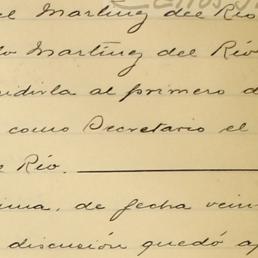 el Martinez del Rio
lo Martinez del Rio
edirla al primero d
como Secretario el
e Rio.
ima, de fecha vein
discusión quedó ap